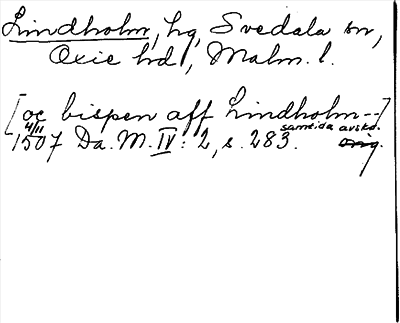 Lindholm, hg, Svedala sn,
Oxie hd, Malm. l.
[oc bispen aff Lindholm--]
4/11 samtida avskr.
1507 Da. M. IV: 2, s. 283. orig.